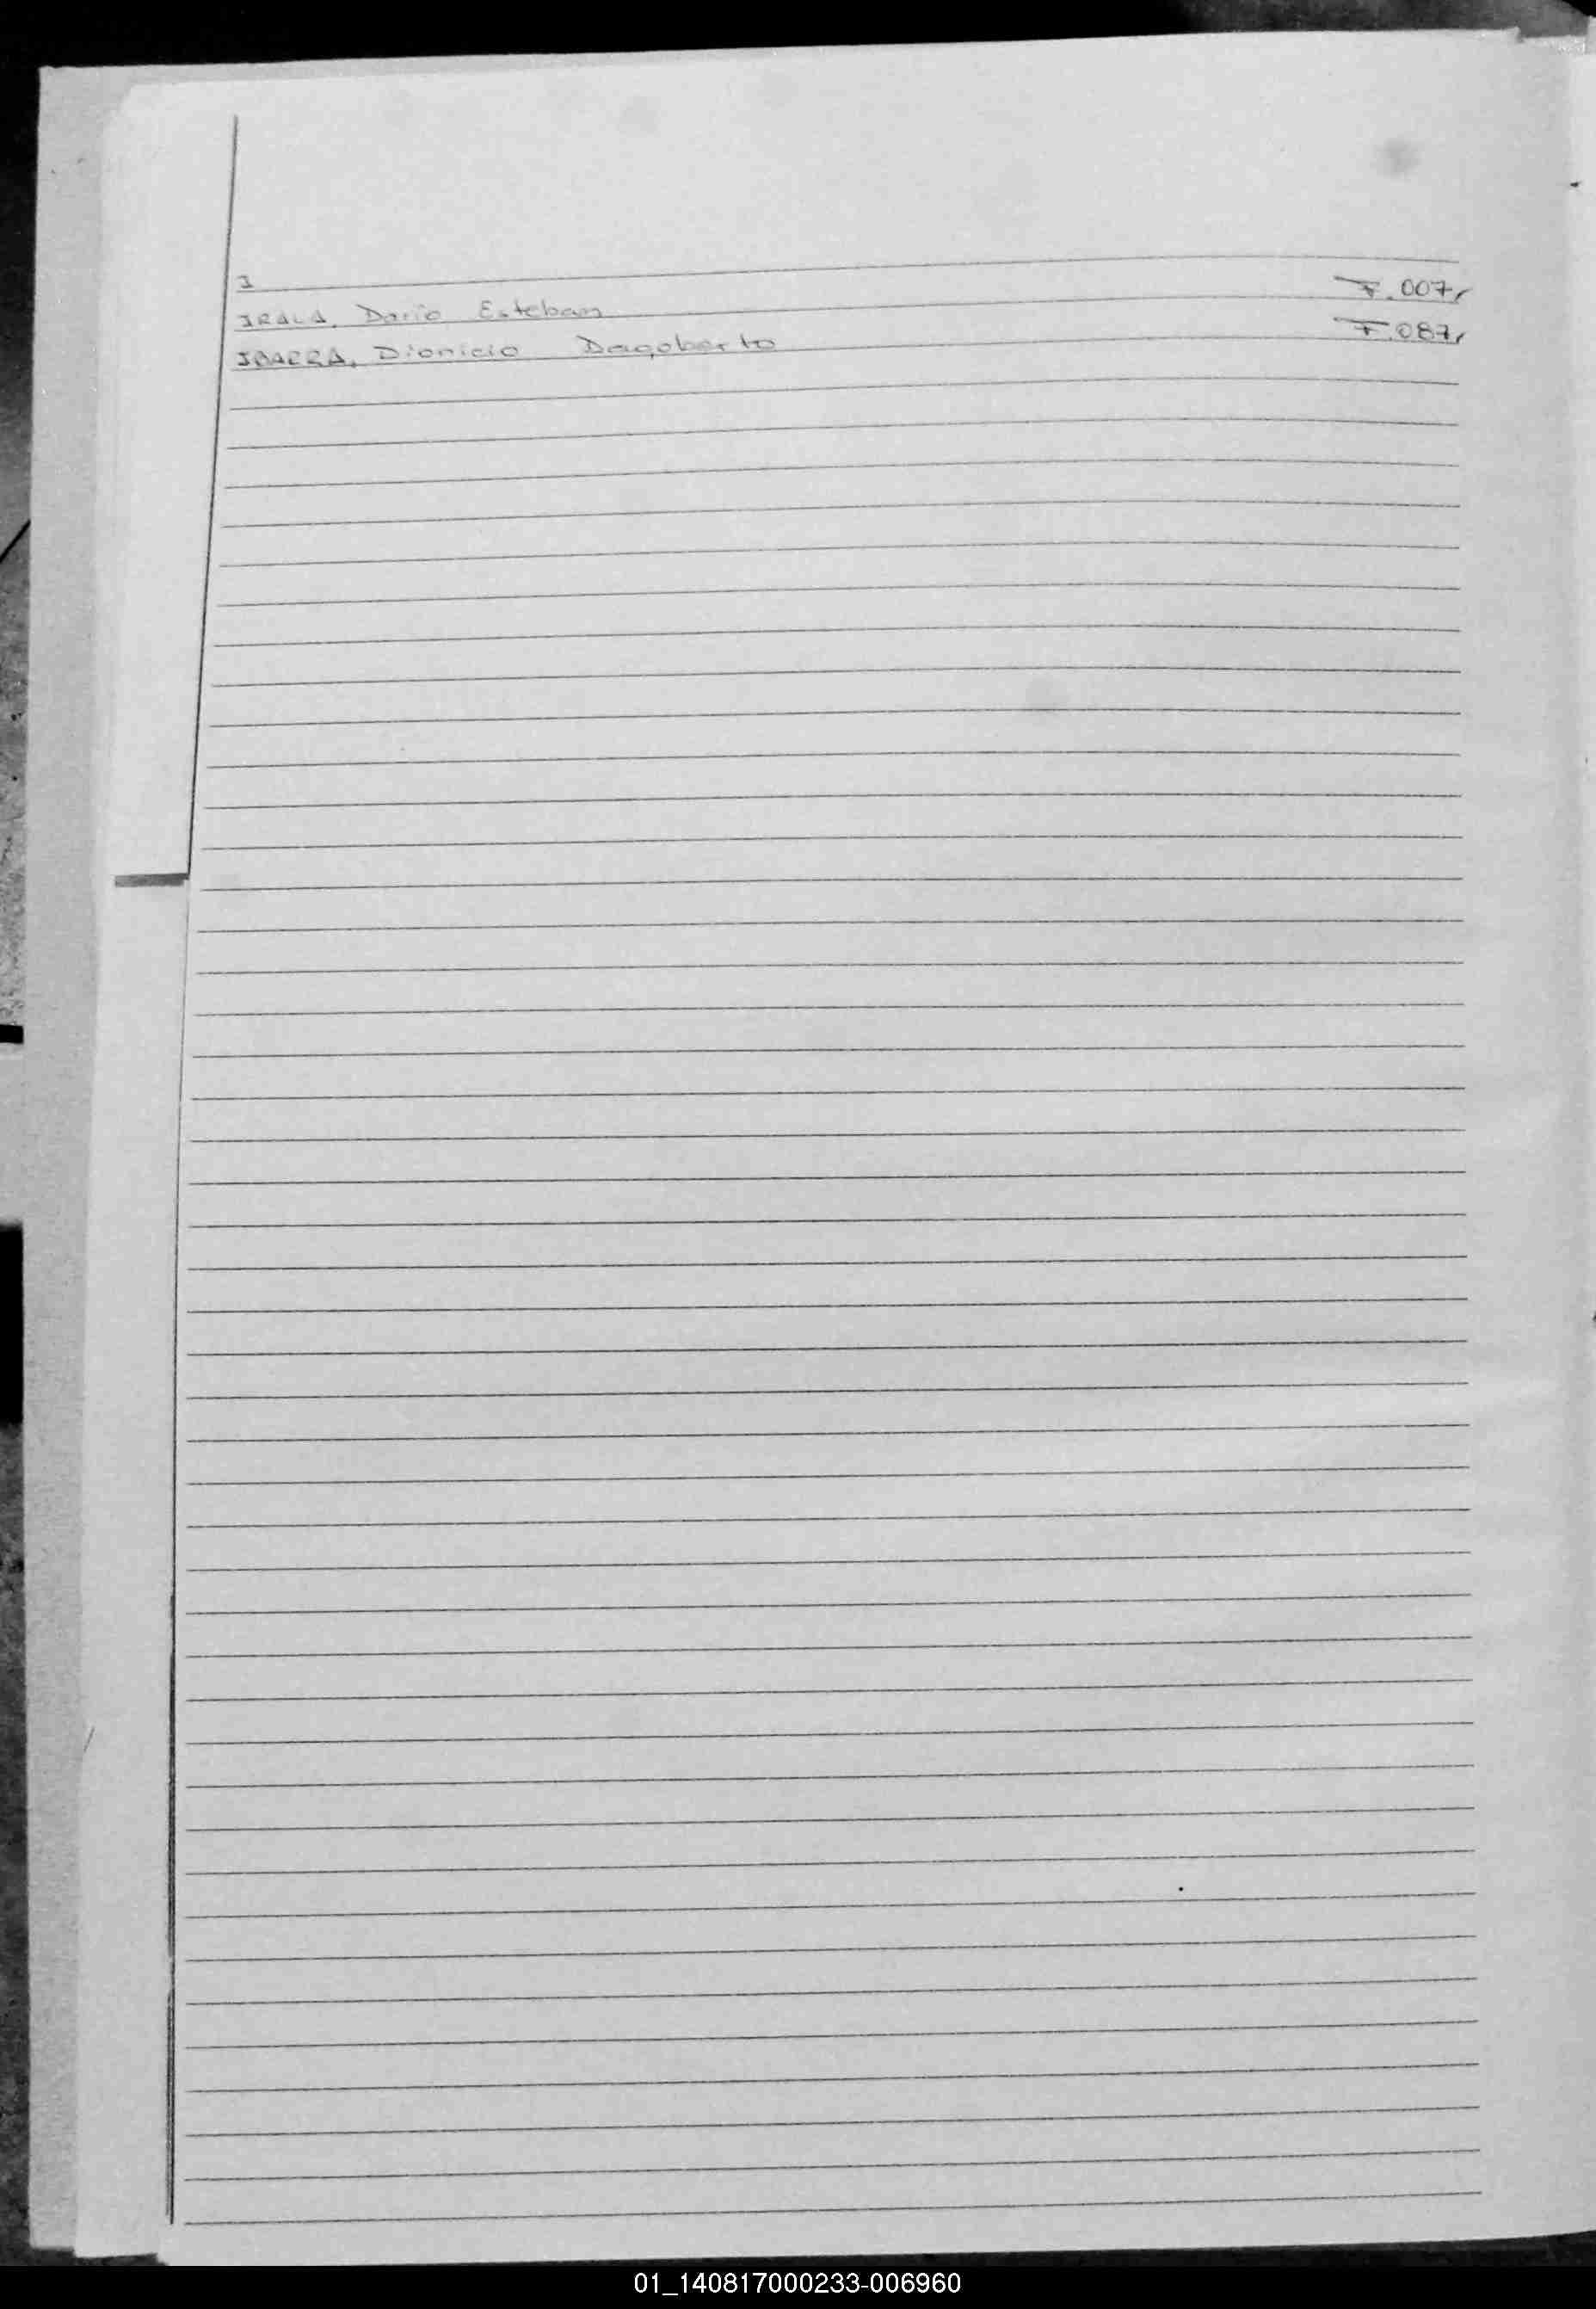 I
IRALA, Darío Esteban F. 007,
IBARRA, Dionicio Dagoberto F. 087,
01_140817000233-006960